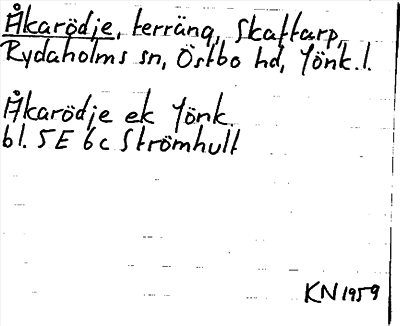 Åkarödje, terräng, Skaftarp,
Rydaholms sn, Östbo hd, Jönk.l.
Åkarödje ek Jönk.
bl. 5E 6c Strömhult
KN 1959